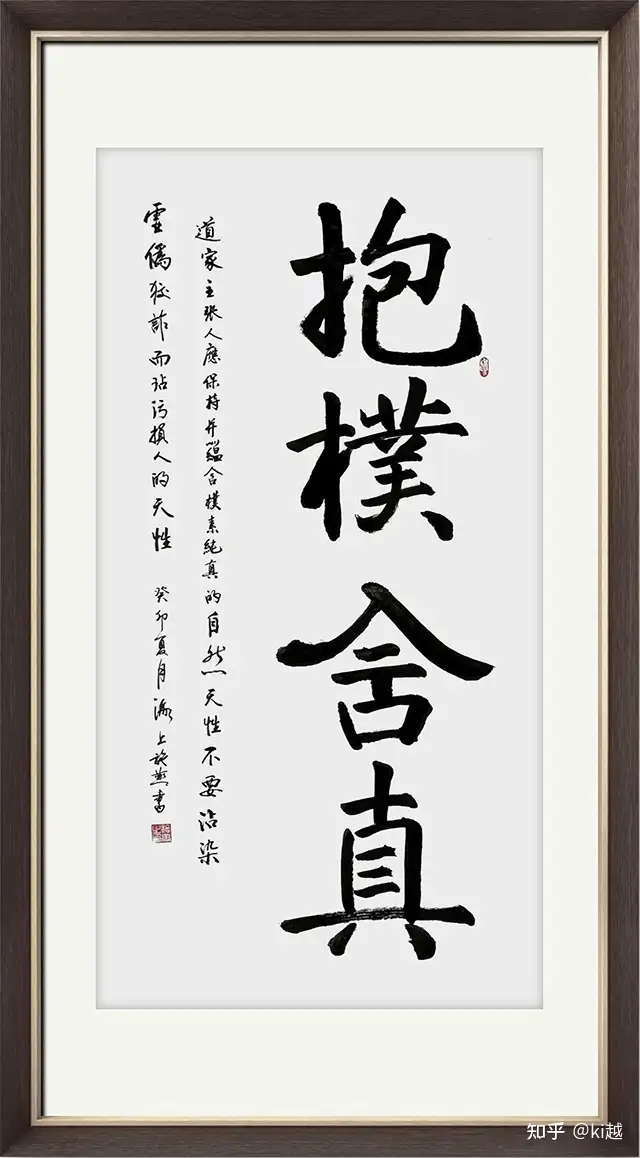 抱樸含真
道家主张人應保持并蘊含樸素純真的自然天性不要沾染
虛偽狡詐而玷污損人的天性 癸卯夏月 上施燕書
知乎 @ki越